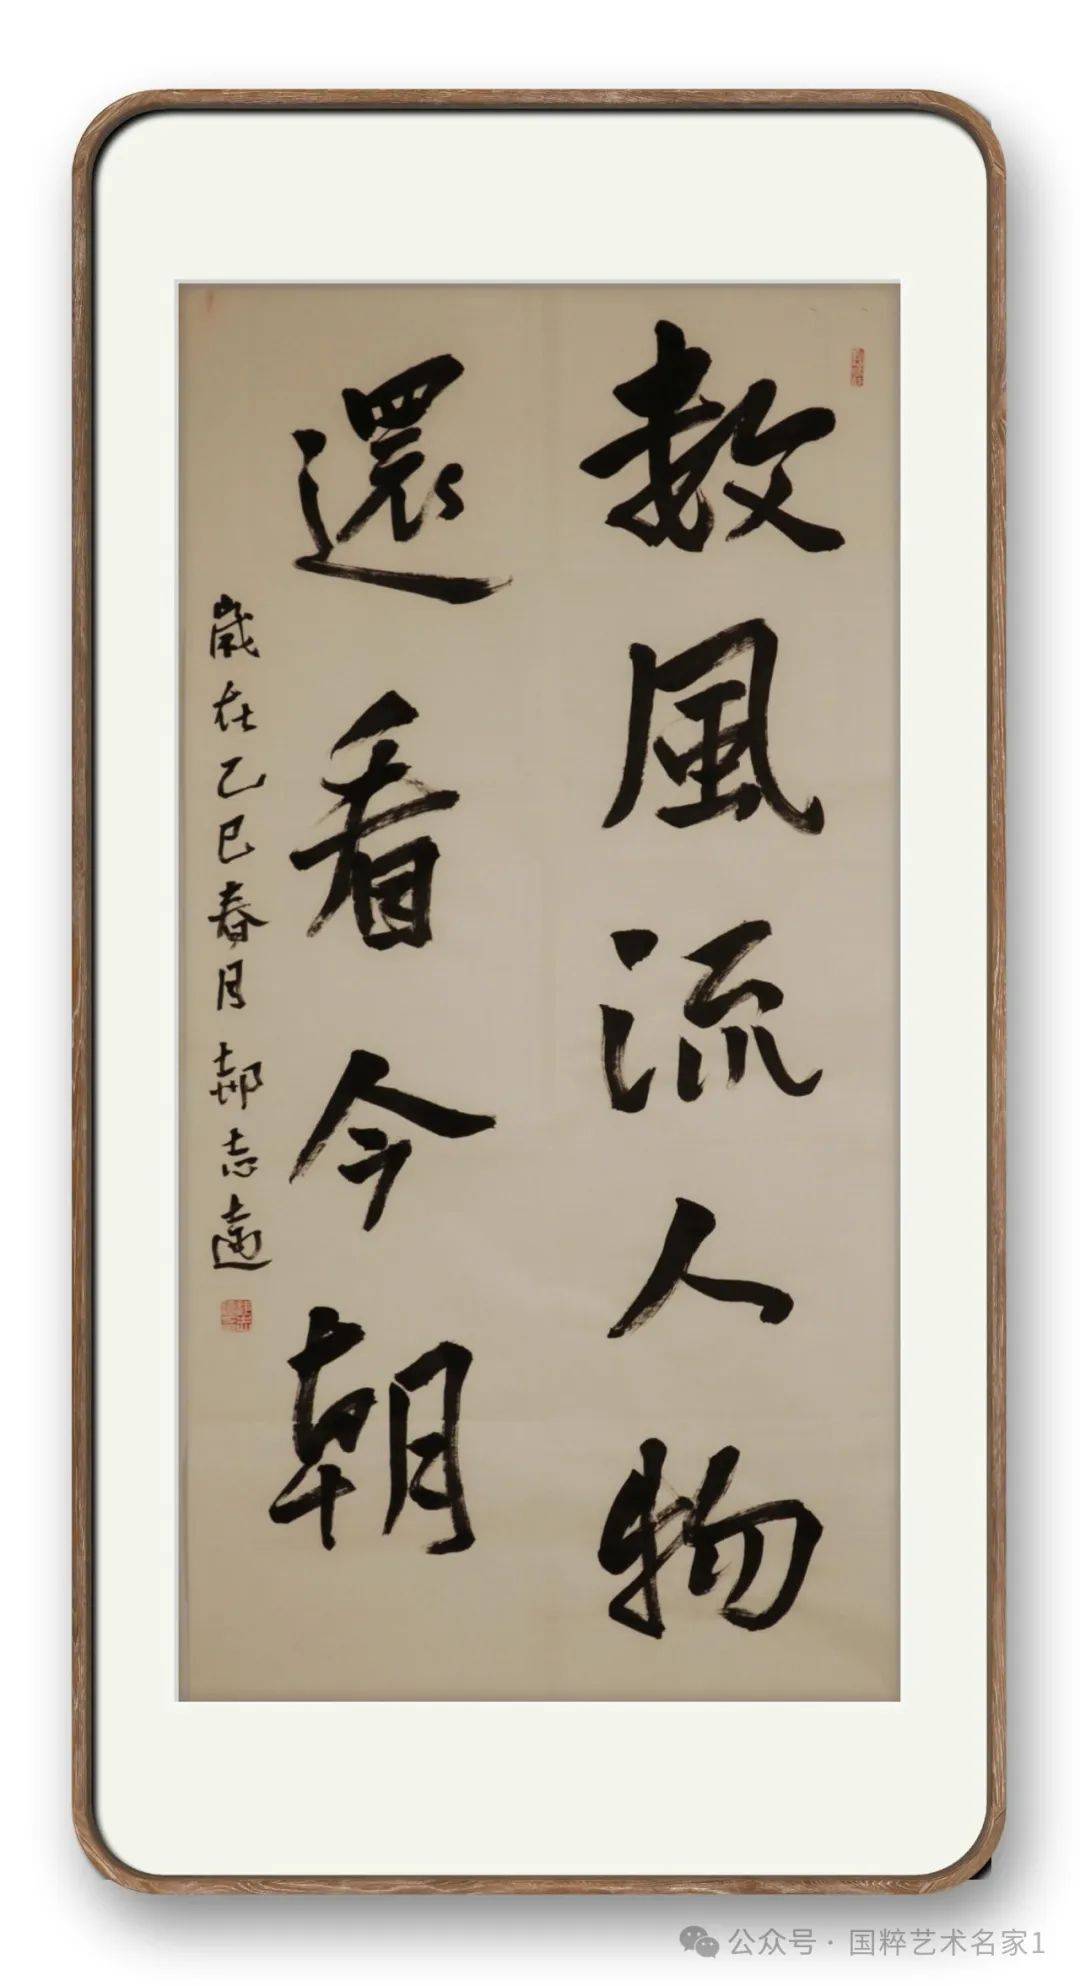 數風流人物
還看今朝
歲在乙巳春月郝志遠
公众号·国粹艺术名家1